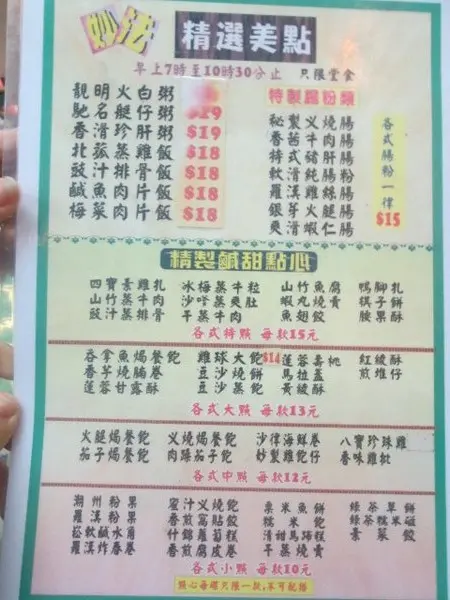 妙法 精選美點
早上7時至10時30分止 只限堂食
靚明火白粥
馳名艇仔粥 $19
香滑珍肝粥 $19
北菰蒸雞飯 $18
豉汁排骨飯 $18
鹹魚肉片飯 $18
梅菜肉片飯 $18
特製腸粉類
秘製义燒腸
香茜牛肉腸
特式豬肝腸
軟滑純腸粉
羅漢雞絲腸
銀芽火腿腸
爽滑蝦仁腸
各式腸粉一律 $15
精製鹹甜點心
四寶素雞札 冰梅蒸牛粒 山竹魚腐 鴨腳扎
山竹蒸牛肉 沙嗲蒸爽肚 蝦丸燒賣 棋子餅
豉汁蒸排骨 干蒸牛肉 魚翅餃 腰果酥
各式特點 每款15元
吞拿魚焗餐飽 雞球大飽 $14 蓮蓉壽桃 紅綾酥
香芋燒腩卷 豆沙燒餅 馬拉盞 煎堆仔
蓮蓉甘露酥 豆沙蒸飽 黃綾酥
各式大點 每款13元
火腿焗餐飽 义燒焗餐飽 沙律海鮮卷 八寶珍珠雞
茄子焗餐飽 肉臊茄子飽 妙製雞飽仔 香味雞批
各式中點 每款12元
潮州粉果 蜜汁义燒飽 粟米魚餅
羅漢粉果 香煎窩貼餃 糯米飽 綠茶糯米磁
菘菰水角 什錦蘿蔔糕 清甜馬蹄糕 素菜餃
軟滑炸春卷 香煎腐皮卷 干蒸燒賣
各式小點 每款10元
點心每碟只限一款,不可配搭